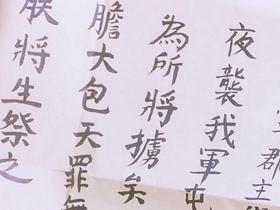 郡主
夜襲我軍屯
為所將擄矣
膽大包天罪無
朕將生祭之